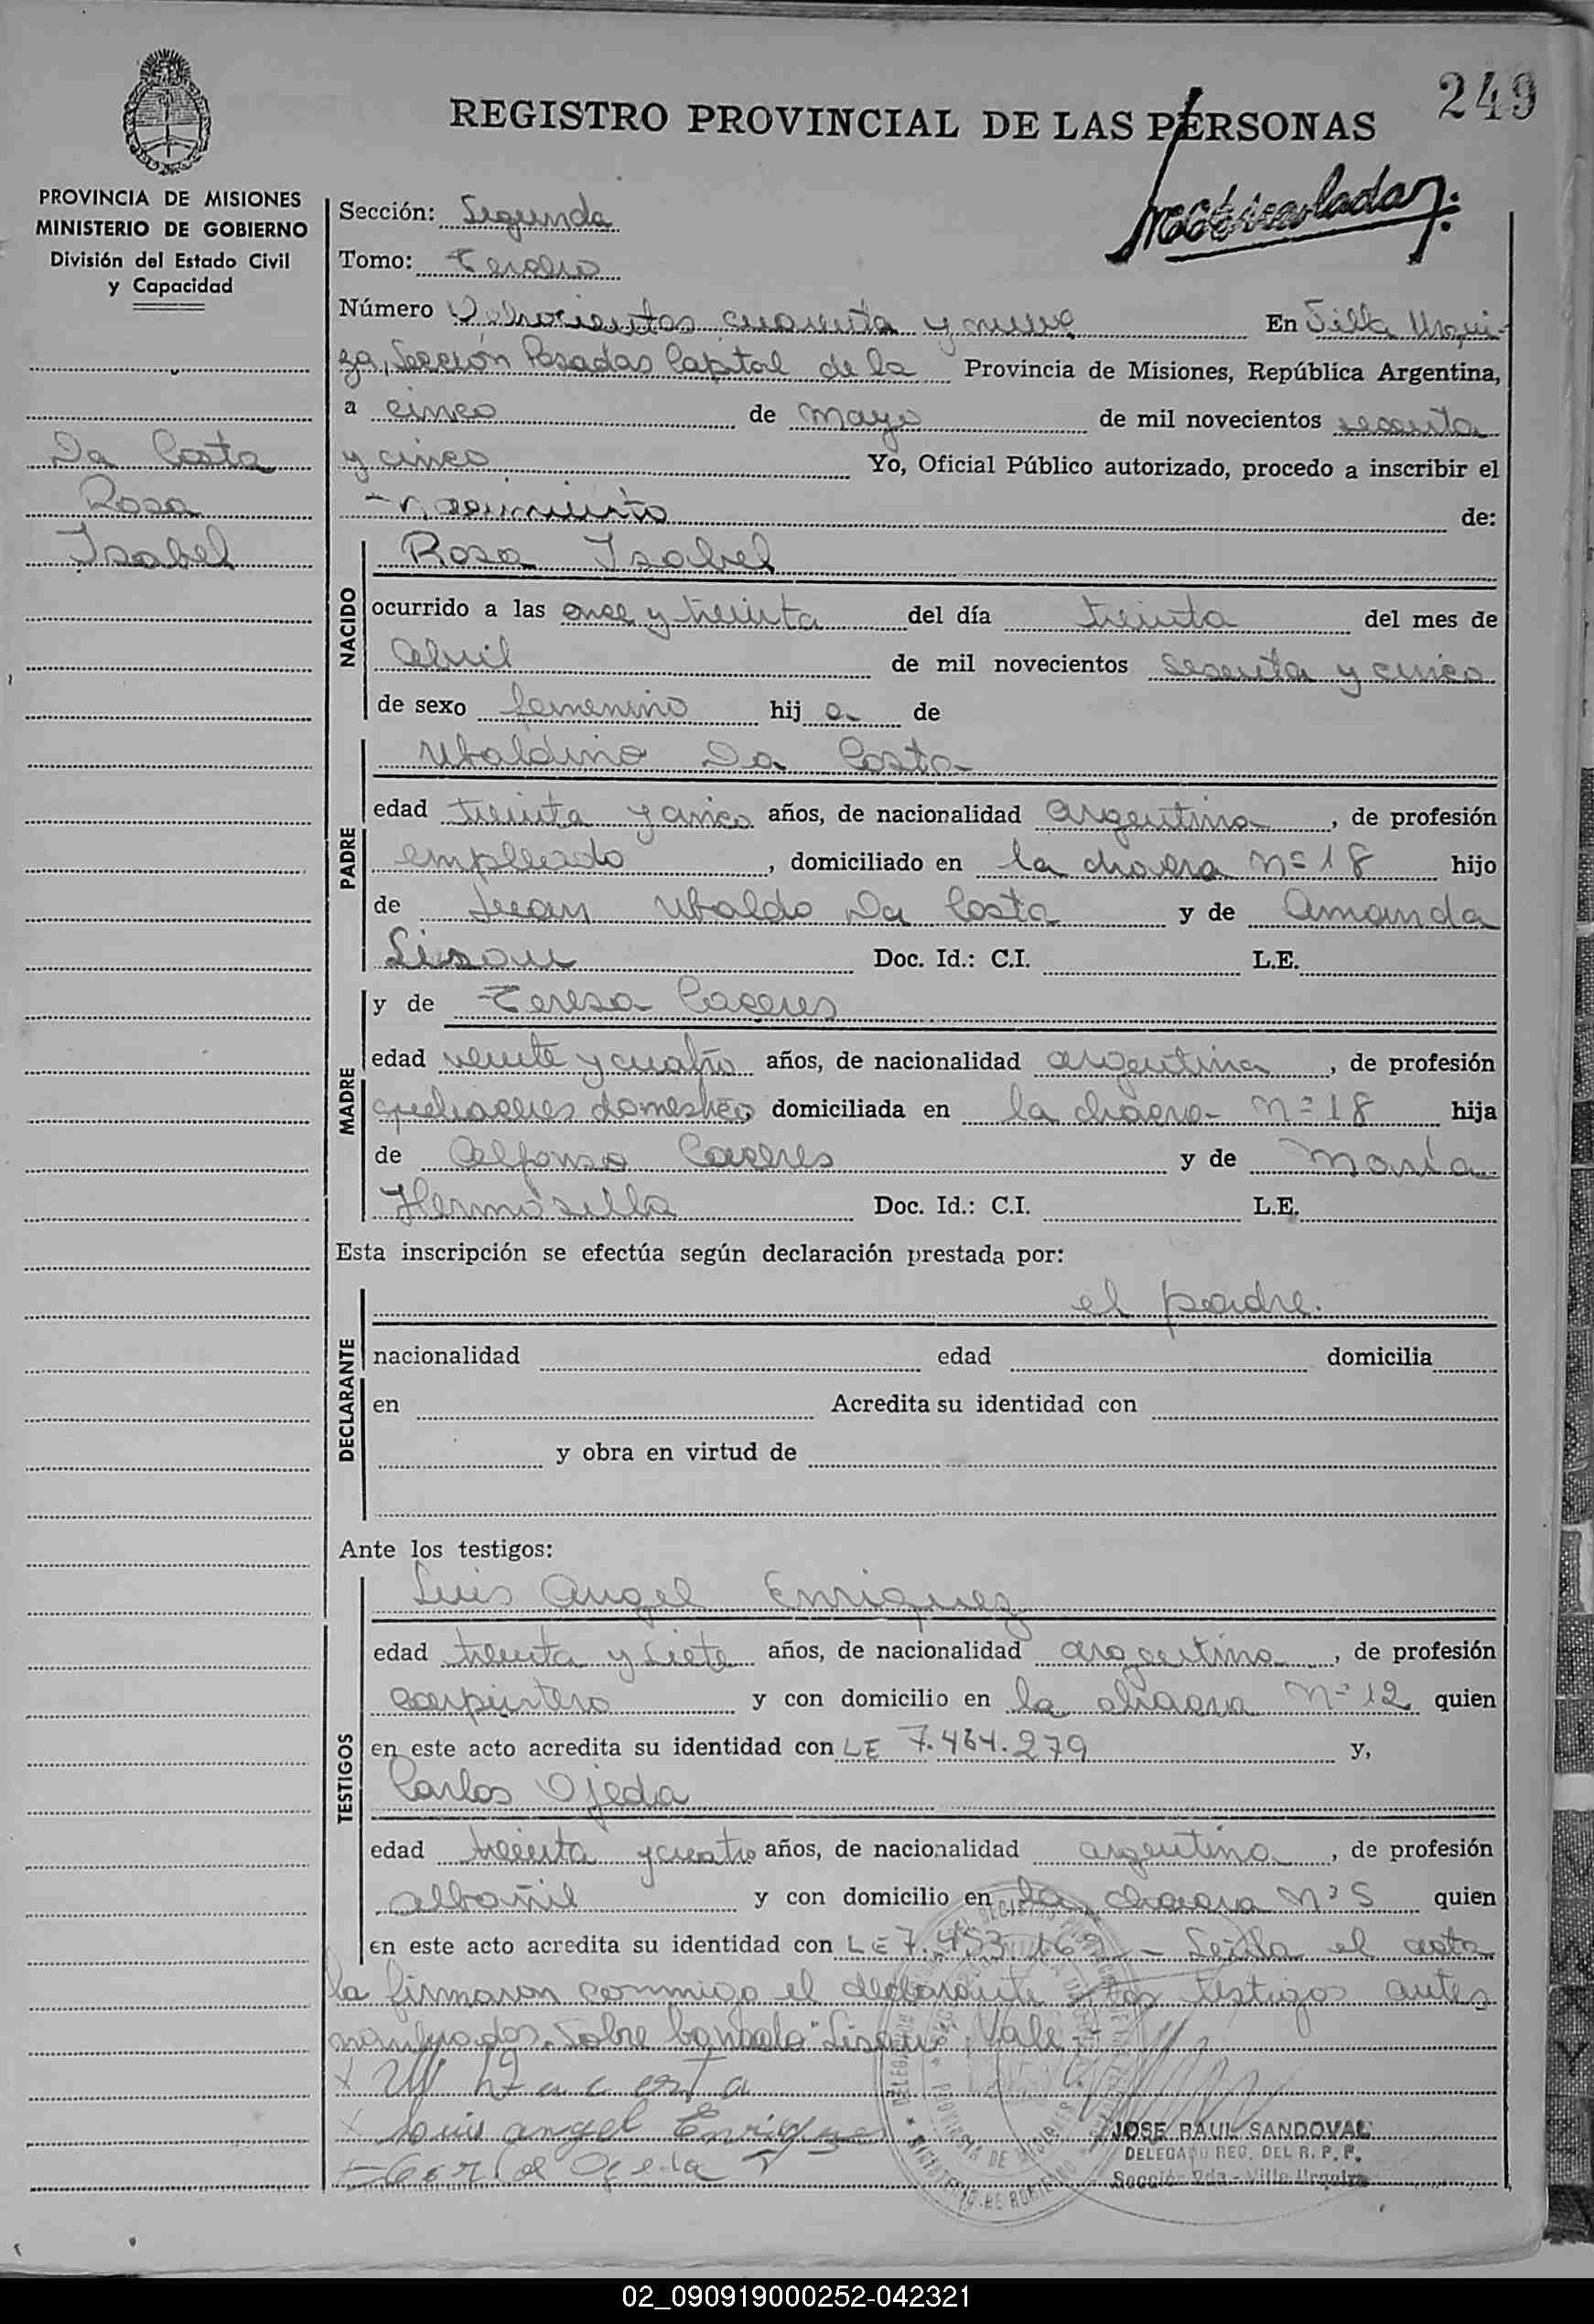 249
REGISTRO PROVINCIAL DE LAS PERSONAS
PROVINCIA DE MISIONES
MINISTERIO DE GOBIERNO
División del Estado Civil
y Capacidad
Da Costa
Rosa
Isabel
Sección: Segunda
Tomo: Tercero
Número Doscientos cuarenta y nueve En Villa Urqui-
za, Sección Posadas Capital de la Provincia de Misiones, República Argentina,
a cinco de mayo de mil novecientos sesenta
y cinco Yo, Oficial Público autorizado, procedo a inscribir el
nacimiento de:
NACIDO
Rosa Isabel
ocurrido a las once y treinta del día treinta del mes de
abril de mil novecientos sesenta y cinco
de sexo femenino hij a de
PADRE
Ubaldino Da Costa
edad treinta y cinco años, de nacionalidad argentina, de profesión
empleado, domiciliado en la chacra Nº 18 hijo
de Juan Ubaldo Da Costa y de Amanda
Lisou Doc. Id.: C.I. L.E.
MADRE
y de Teresa Caceres
edad veinte y cuatro años, de nacionalidad argentina, de profesión
quehaceres domestico, domiciliada en la chacra Nº 18 hija
de Alfonso Caceres y de María
Hermosilla Doc. Id.: C.I. L.E.
Esta inscripción se efectúa según declaración prestada por:
DECLARANTE
el padre.
nacionalidad edad domicilia
en Acredita su identidad con
y obra en virtud de
Ante los testigos:
TESTIGOS
Luis Angel Enriquez
edad treinta y siete años, de nacionalidad argentina, de profesión
carpintero y con domicilio en la chacra Nº 12 quien
en este acto acredita su identidad con LE 7.464.279 y,
Carlos Ojeda
edad treinta y cuatro años, de nacionalidad argentina, de profesión
albañil y con domicilio en la chacra Nº 5 quien
en este acto acredita su identidad con LE 7.453.169 - Leida el acta
la firmaron conmigo el declarante y los testigos antes
nombrados. Sobre borrado "Lisou", Vale.-
Da costa
Luis angel Enriquez
Ojeda
JOSE RAUL SANDOVAL
DELEGADO REG. DEL R. P. P.
Sección 2da - Villa Urquiza
02_090919000252-042321